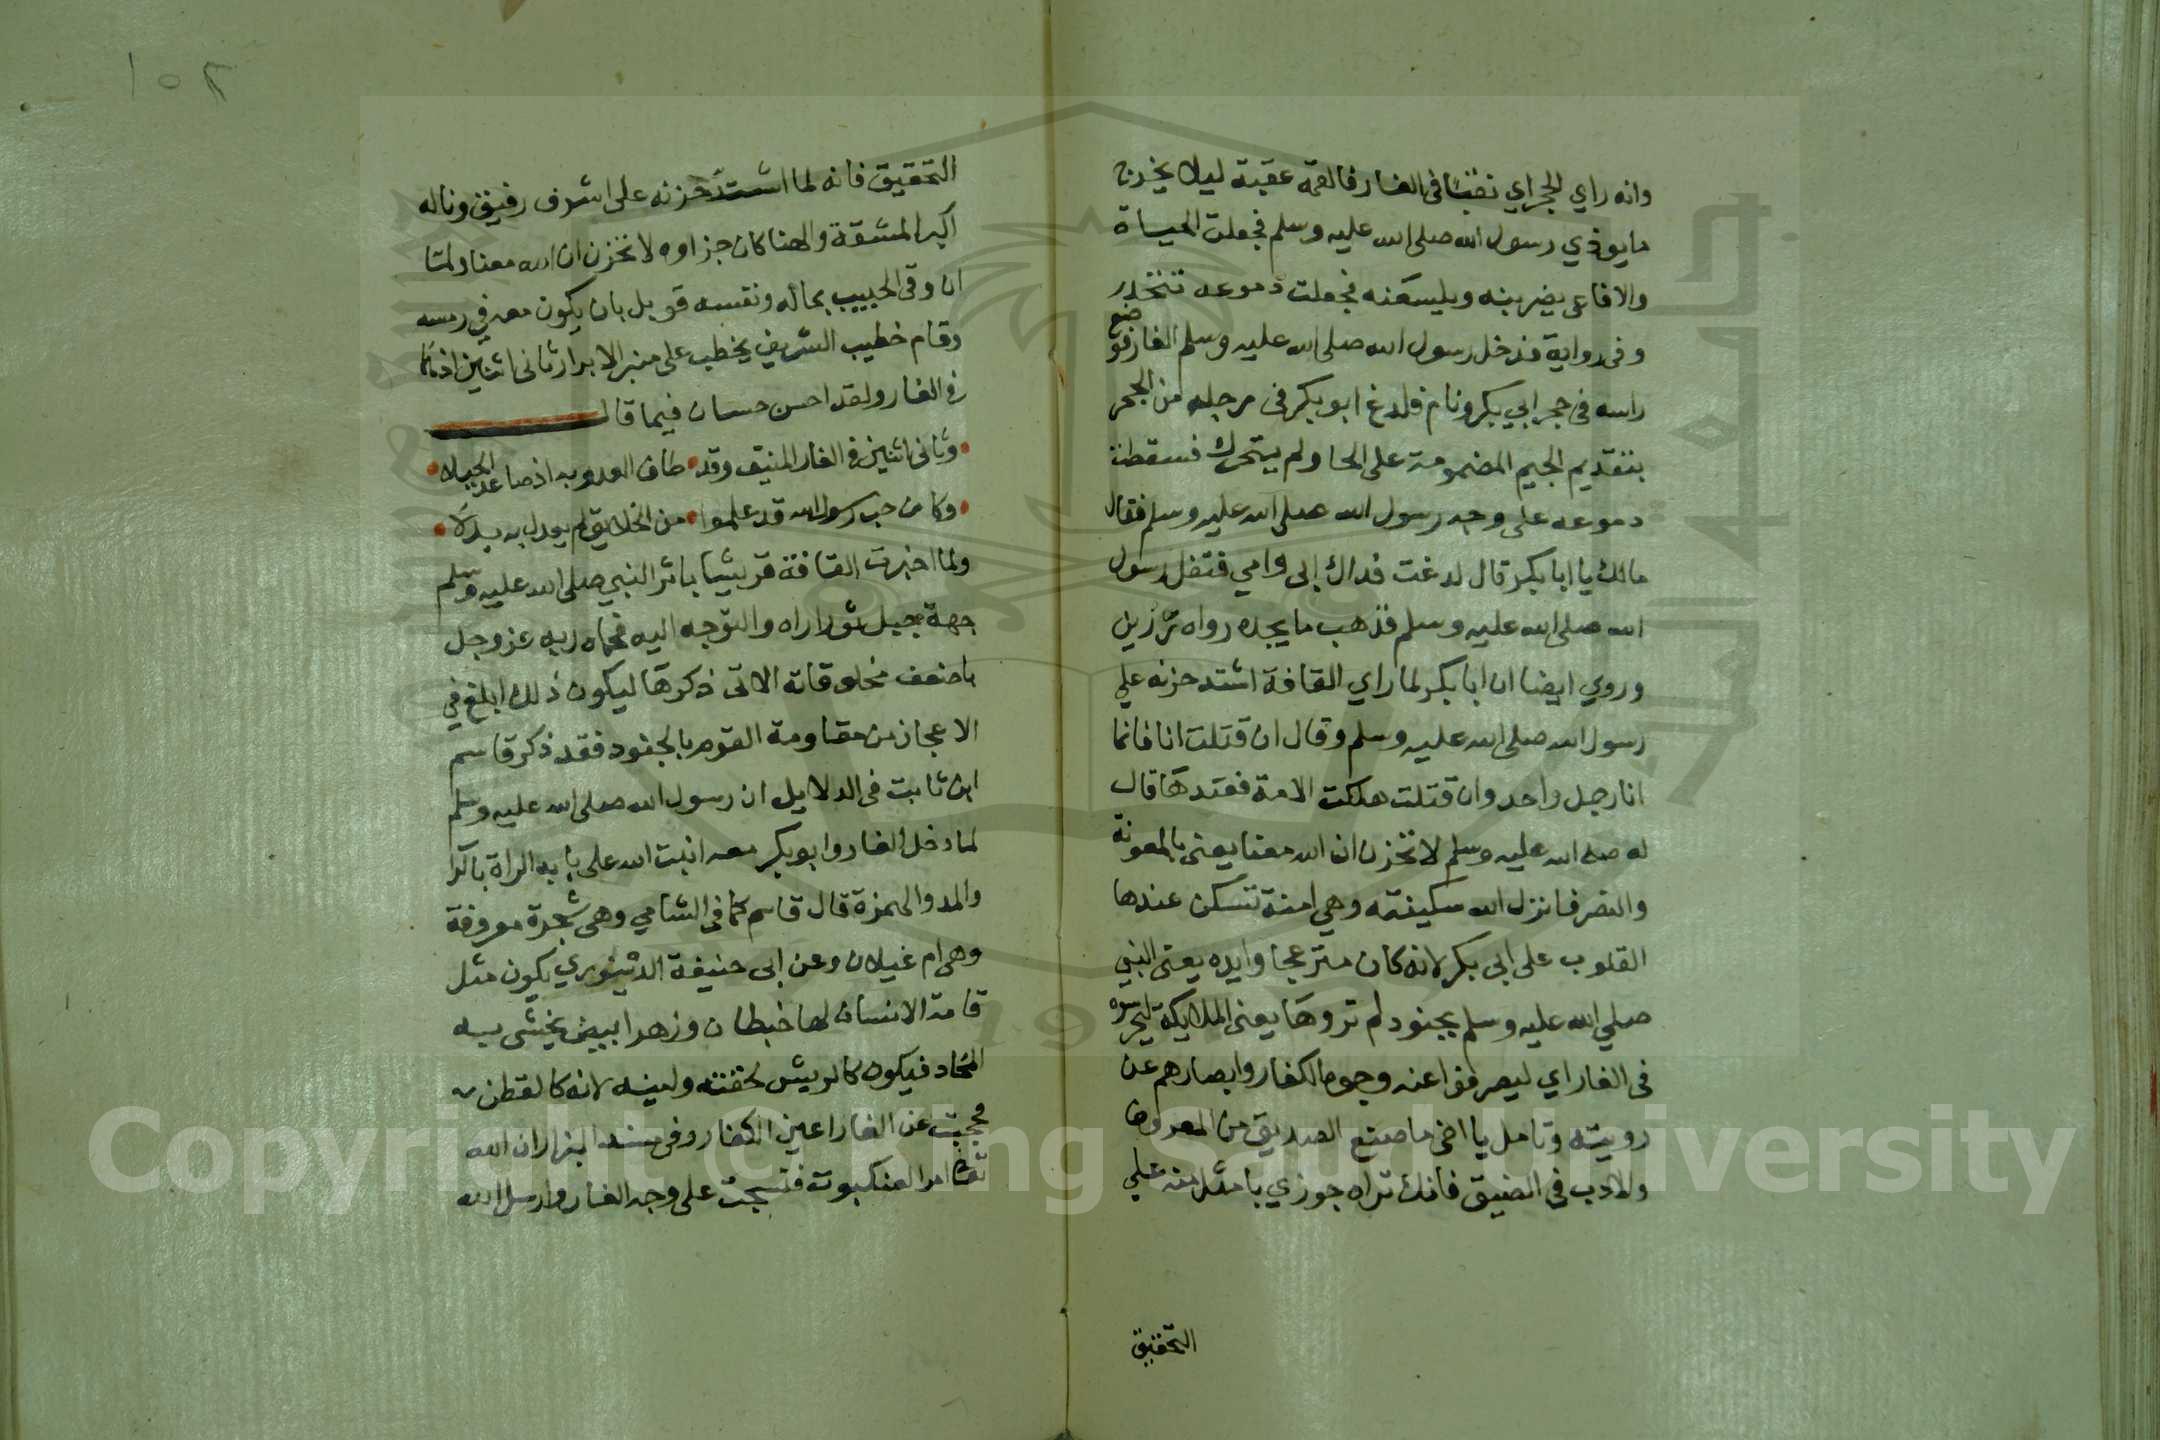 وانه راي الجراي نقبا في الغار فالقمه عقبة ليلا يخرج
ما يوذي رسول الله صلى الله عليه وسلم فجعلت الحياة
والافاعي يضربنه ويلسعنه فجعلت دموعه تتحدر
وفي رواية فدخل رسول الله صلى الله عليه وسلم الغار فوضع
راسه في حجر ابي بكر ونام فلدغ ابو بكر في رجله من الجحر
بتقديم الجيم المضمومة على الحا ولم يتحرك فسقطت
دموعه على وجه رسول الله صلى الله عليه وسلم فقال
مالك يا ابا بكر قال لدغت فداك ابي وامي فتفل رسول
الله صلى الله عليه وسلم فذهب ما يجده رواه رزين
وروي ايضا ان ابا بكر لما راي القافة اشتد حزنه علي
رسول الله صلى الله عليه وسلم وقال ان قتلت انا فانما
انا رجل واحد وان قتلت هلكت الامة فعندها قال
له صلى الله عليه وسلم لا تحزن ان الله معنا يعني بالمعونة
والنصر فانزل الله سكينته وهي امنة تسكن عندها
القلوب على ابي بكر لانه كان منزعجا وايده يعني النبي
صلي الله عليه وسلم بجنود لم تروها يعني الملايكة ليحرسوه
في الغار اي ليصرفوا عنه وجوه الكفار وابصارهم عن
رويته وتامل يا اخي ما صنع الصديق من المعروف
والادب في الضيق فانك تراه جوزي بامثل منه علي
التحقيق
١٥٢
التحقيق فانه لما اشتد حزنه على اشرف رفيق وناله
اكبر المشقة والعنا كان جزاوه لا تحزن ان الله معنا ولما
ان وقى الحبيب بماله ونفسه قوبل بان يكون معه في رمسه
وقام خطيب الشريف يخطب على منبر الابرار ثاني اثنين اذ هما
في الغار ولقد احسن حسان فيما قال
وثاني اثنين في الغار المنيف وقد طاف العدو به اذ صاعد الجبلا
وكان حب رسول الله قد علموا من الخلايق لم يعدل به بدلا
ولما اخبرت القافة قريشا باثر النبي صلى الله عليه وسلم
جهة جبل ثور اراه والتوجه اليه فحماه ربه عز وجل
باضعف مخلوقاته الاتي ذكرها ليكون ذلك ابلغ في
الاعجاز من مقاومة القوم بالجنود فقد ذكر قاسم
ابن ثابت في الدلايل ان رسول الله صلى الله عليه وسلم
لما دخل الغار وابو بكر معه انبت الله على بابه الراة بالرا
والمد والهمزة قال قاسم كما في الشامي وهي شجرة معروفة
وهي ام غيلان وعن ابي حنيفة الدينوري يكون مثل
قامة الانسان لها خيطان وزهر ابيض يحشى به
المخاد فيكون كالريش لخفته ولينه لانه كالقطن
فحجبت عن الغار اعين الكفار وفي مسند البزار ان الله
تعالى امر العنكبوت فنسجت على وجه الغار وارسل الله